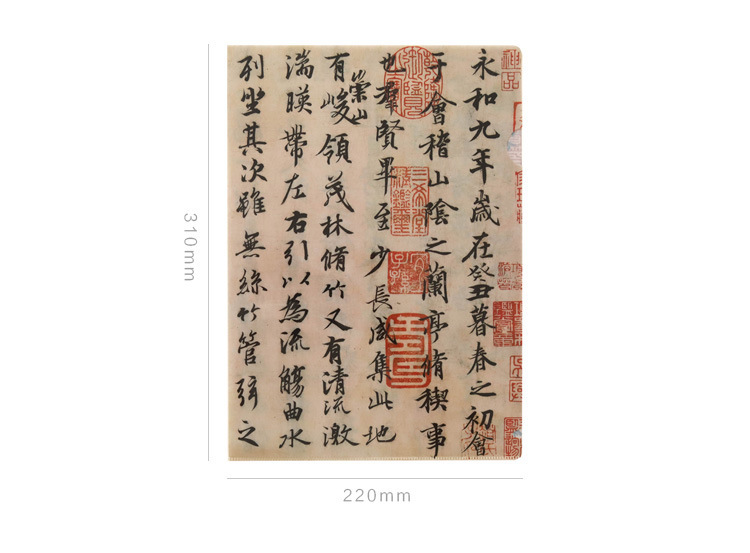 永和九年歲在癸丑暮春之初會
于會稽山陰之蘭亭脩稧事
也羣賢畢至少長咸集此地
有崇山峻領茂林脩竹又有清流激
湍暎帶左右引以為流觴曲水
列坐其次雖無絲竹管弦之
神品
三希堂精鑑璽
宜子孫
310mm
220mm